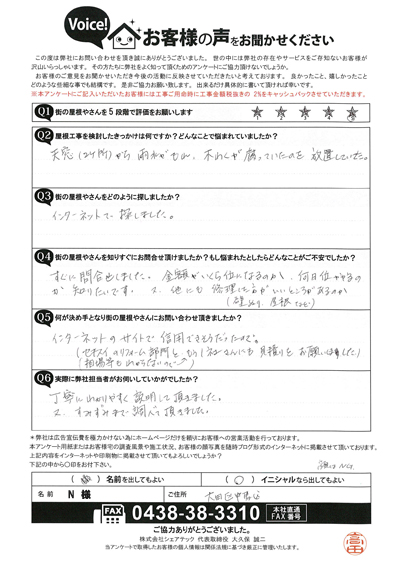 Voice!
お客様の声をお聞かせください
この度は弊社にお問い合わせを頂き誠にありがとうございました。 世の中には弊社の存在やサービスをご存知ないお客様が
沢山いらっしゃいます。 その方たちに弊社をよく知って頂くためのアンケートにご協力頂けないでしょうか。
お客様のご意見をお聞かせいただき今後の活動に反映させていただきたいと考えております。 良かったこと、嬉しかったこと
どのような些細な事でも結構です。 是非ご協力お願い致します。 出来るだけ具体的に書いて頂ければ幸いです。
※本アンケートにご記入いただいたお客様には工事ご用命時に工事金額税抜きの 2%をキャッシュバックさせていただきます。
Q1 街の屋根やさんを5段階で評価をお願いします
Q2 屋根工事を検討したきっかけは何ですか？どんなことで悩まれていましたか？
天窓(2ヶ所)から雨がもれ、木わくが腐っていたのを放置していた。
Q3 街の屋根やさんをどのように探しましたか？
インターネットで探しました。
Q4 街の屋根やさんを知りすぐにお問合せ頂けましたか？もし悩まれたとしたらどんなことがご不安でしたか？
すぐに問合せしました。 金額がいくら位になるのか、何日位かかるの
か知りたいです。 又、他にも修理した方がいいところがあるのか
Q5 何が決め手となり街の屋根やさんにお問い合わせ頂きましたか？
インターネットのサイトで信用できそうだったので。
Q6 実際に弊社担当者がお伺いしていかがでしたか？
丁寧にわかりやすく説明して頂きました。
又、すみずみまで調べて頂きました。
＊弊社は広告宣伝費を極力かけない為にホームページだけを頼りにお客様への営業活動を行っております。
本アンケート用紙またはお客様宅の調査風景や施工状況、お客様の顔写真を随時ブログ形式のインターネットに掲載させて頂いております。
上記内容をインターネットや印刷物に掲載させて頂いてもよろしいでしょうか？
下記の中から〇印をお付下さい。
( ) 名前を出してもよい ( 〇 ) イニシャルなら出してもよい
名 前 N 様 ご住所 大田区中馬込
FAX 0438-38-3310 本社直通 FAX番号
ご協力ありがとうございました。
株式会社シェアテック 代表取締役 大久保 誠二
当アンケートで取得したお客様の個人情報は関係法規に基づき厳正に管理いたします。